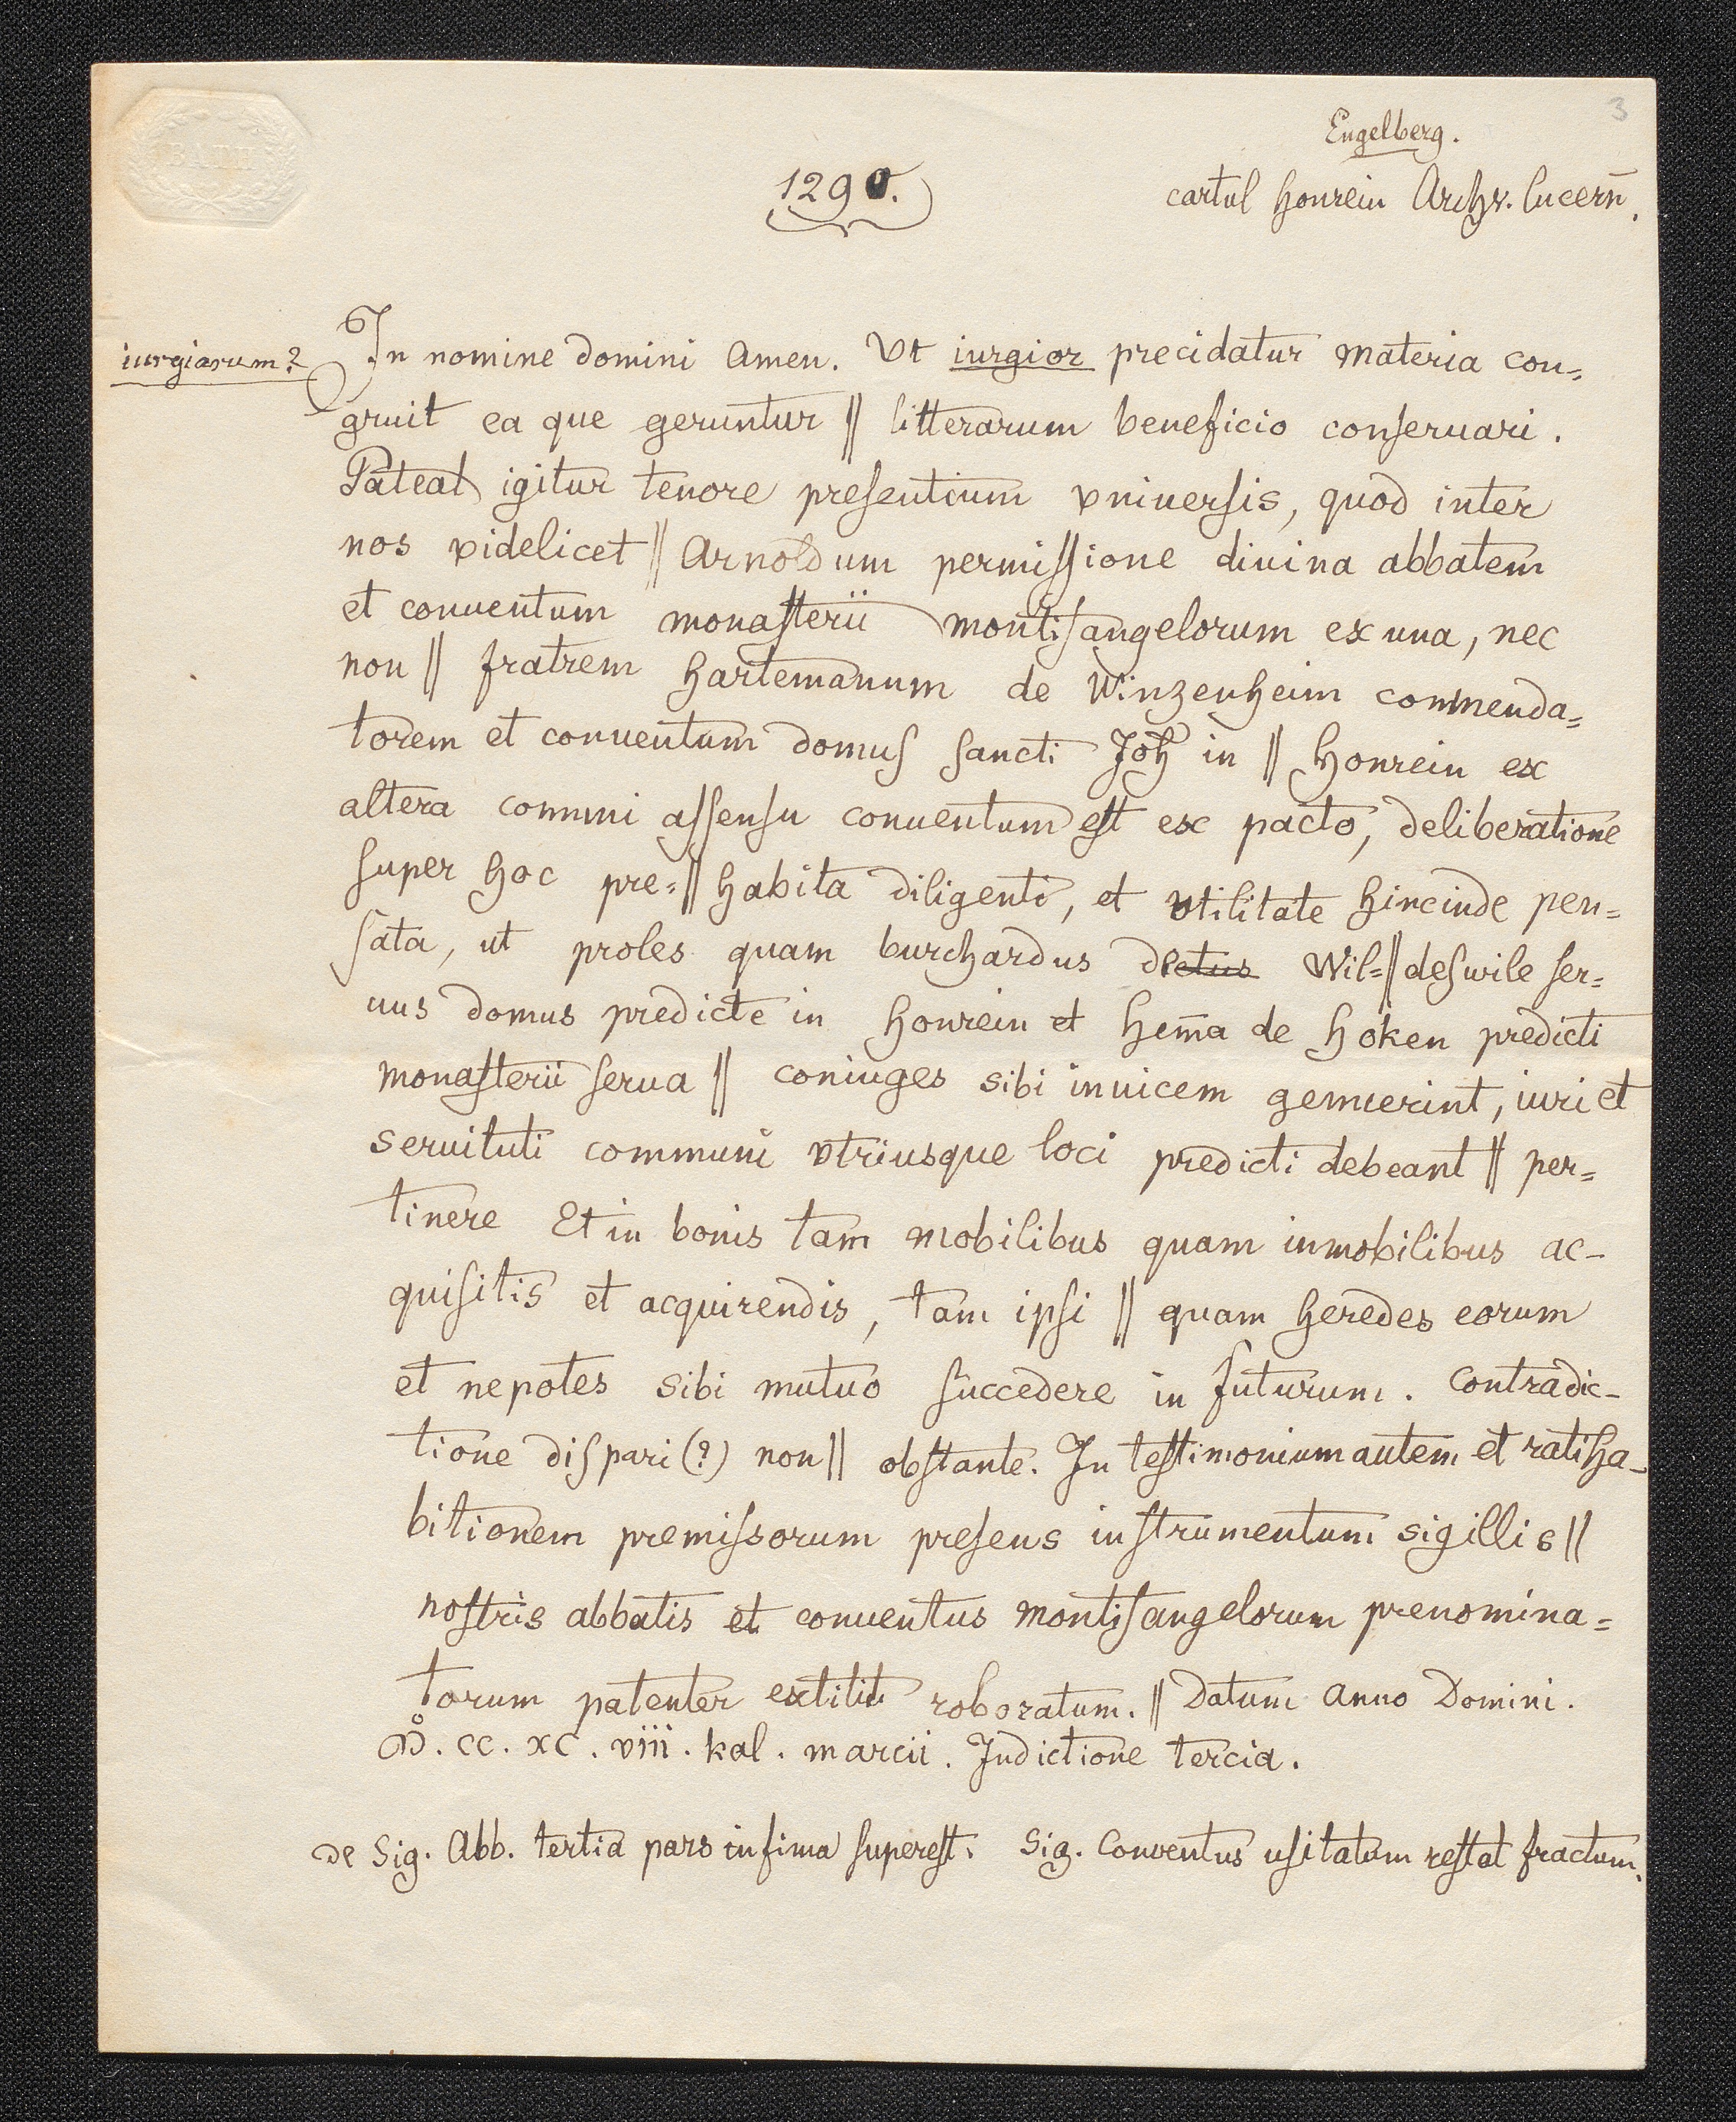 3
Engelberg.
1290.
cartul Honrein Archv. Lucern̄.
BATH
iurgiarum?
In nomine domini Amen. Vt iurgior precidatur materia con=
gruit ea que geruntur || litterarum beneficio conseruari.
Pateat igitur tenore presentium vniuersis, quod inter
nos videlicet || Arnoldum permissione diuina abbatem
et conuentum monasterii montisangelorum ex una, nec
non || fratrem Hartemanum de Winzenheim commenda=
torem et conuentum domus sancti Joh̄ in || Honrein ex
altera commni assensu conuentum est ex pacto, deliberatione
super hoc pre=|| habita diligenti, et vtilitate hincinde pen=
sata, ut proles quam burchardus dictus Wil=|| deswile ser=
uus domus predicte in Honrein et Hem̄a de Hoken predicti
monasterii serua || coniuges sibi inuicem genuerint, iuri et
seruituti communi vtriusque loci predicti debeant || per=
tinere Et in bonis tam mobilibus quam inmobilibus ac-
quisitis et acquirendis, tam ipsi || quam heredes eorum
et nepotes sibi mutuo succedere in futurum. Contradic-
tione dispari (?) non || obstante. In testimonium autem et ratiha-
bitionem premissorum presens instrumentum sigillis ||
nostris abbatis et conuentus montisangelorum prenomina=
torum patenter extitit roboratum. || Datum anno Domini.
M̊. cc. xc. viii. kal. marcii. Indictione tercia.
De Sig. Abb. tertia pars infima superest. Sig. Conventus usitatum restat fractum.